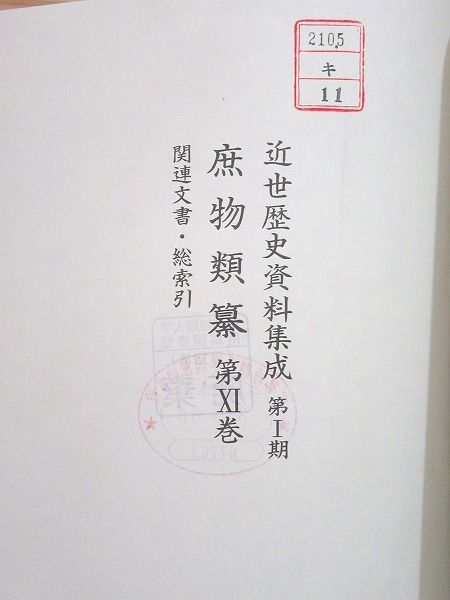 210.5
キ
11
近世歴史資料集成 第Ⅰ期
庶物類纂 第XI巻
関連文書・総索引